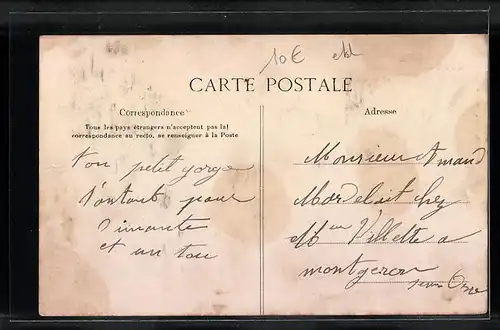 10€
CARTE POSTALE
Correspondance
Tous les pays étrangers n'acceptent pas la
correspondance au recto, se renseigner à la Poste
Adresse
ton petit gorge
pour
et un tou
Monsieur Amand
Mordelait chez
Villette a
montgeron